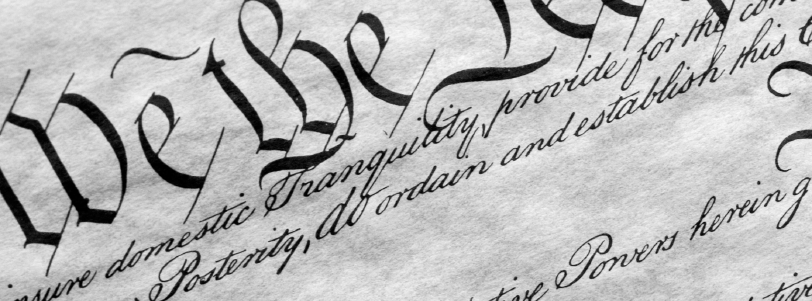 We the Peop
insure domestic Tranquility, provide for the com
Posterity, do ordain and establish this C
tive Powers herein g